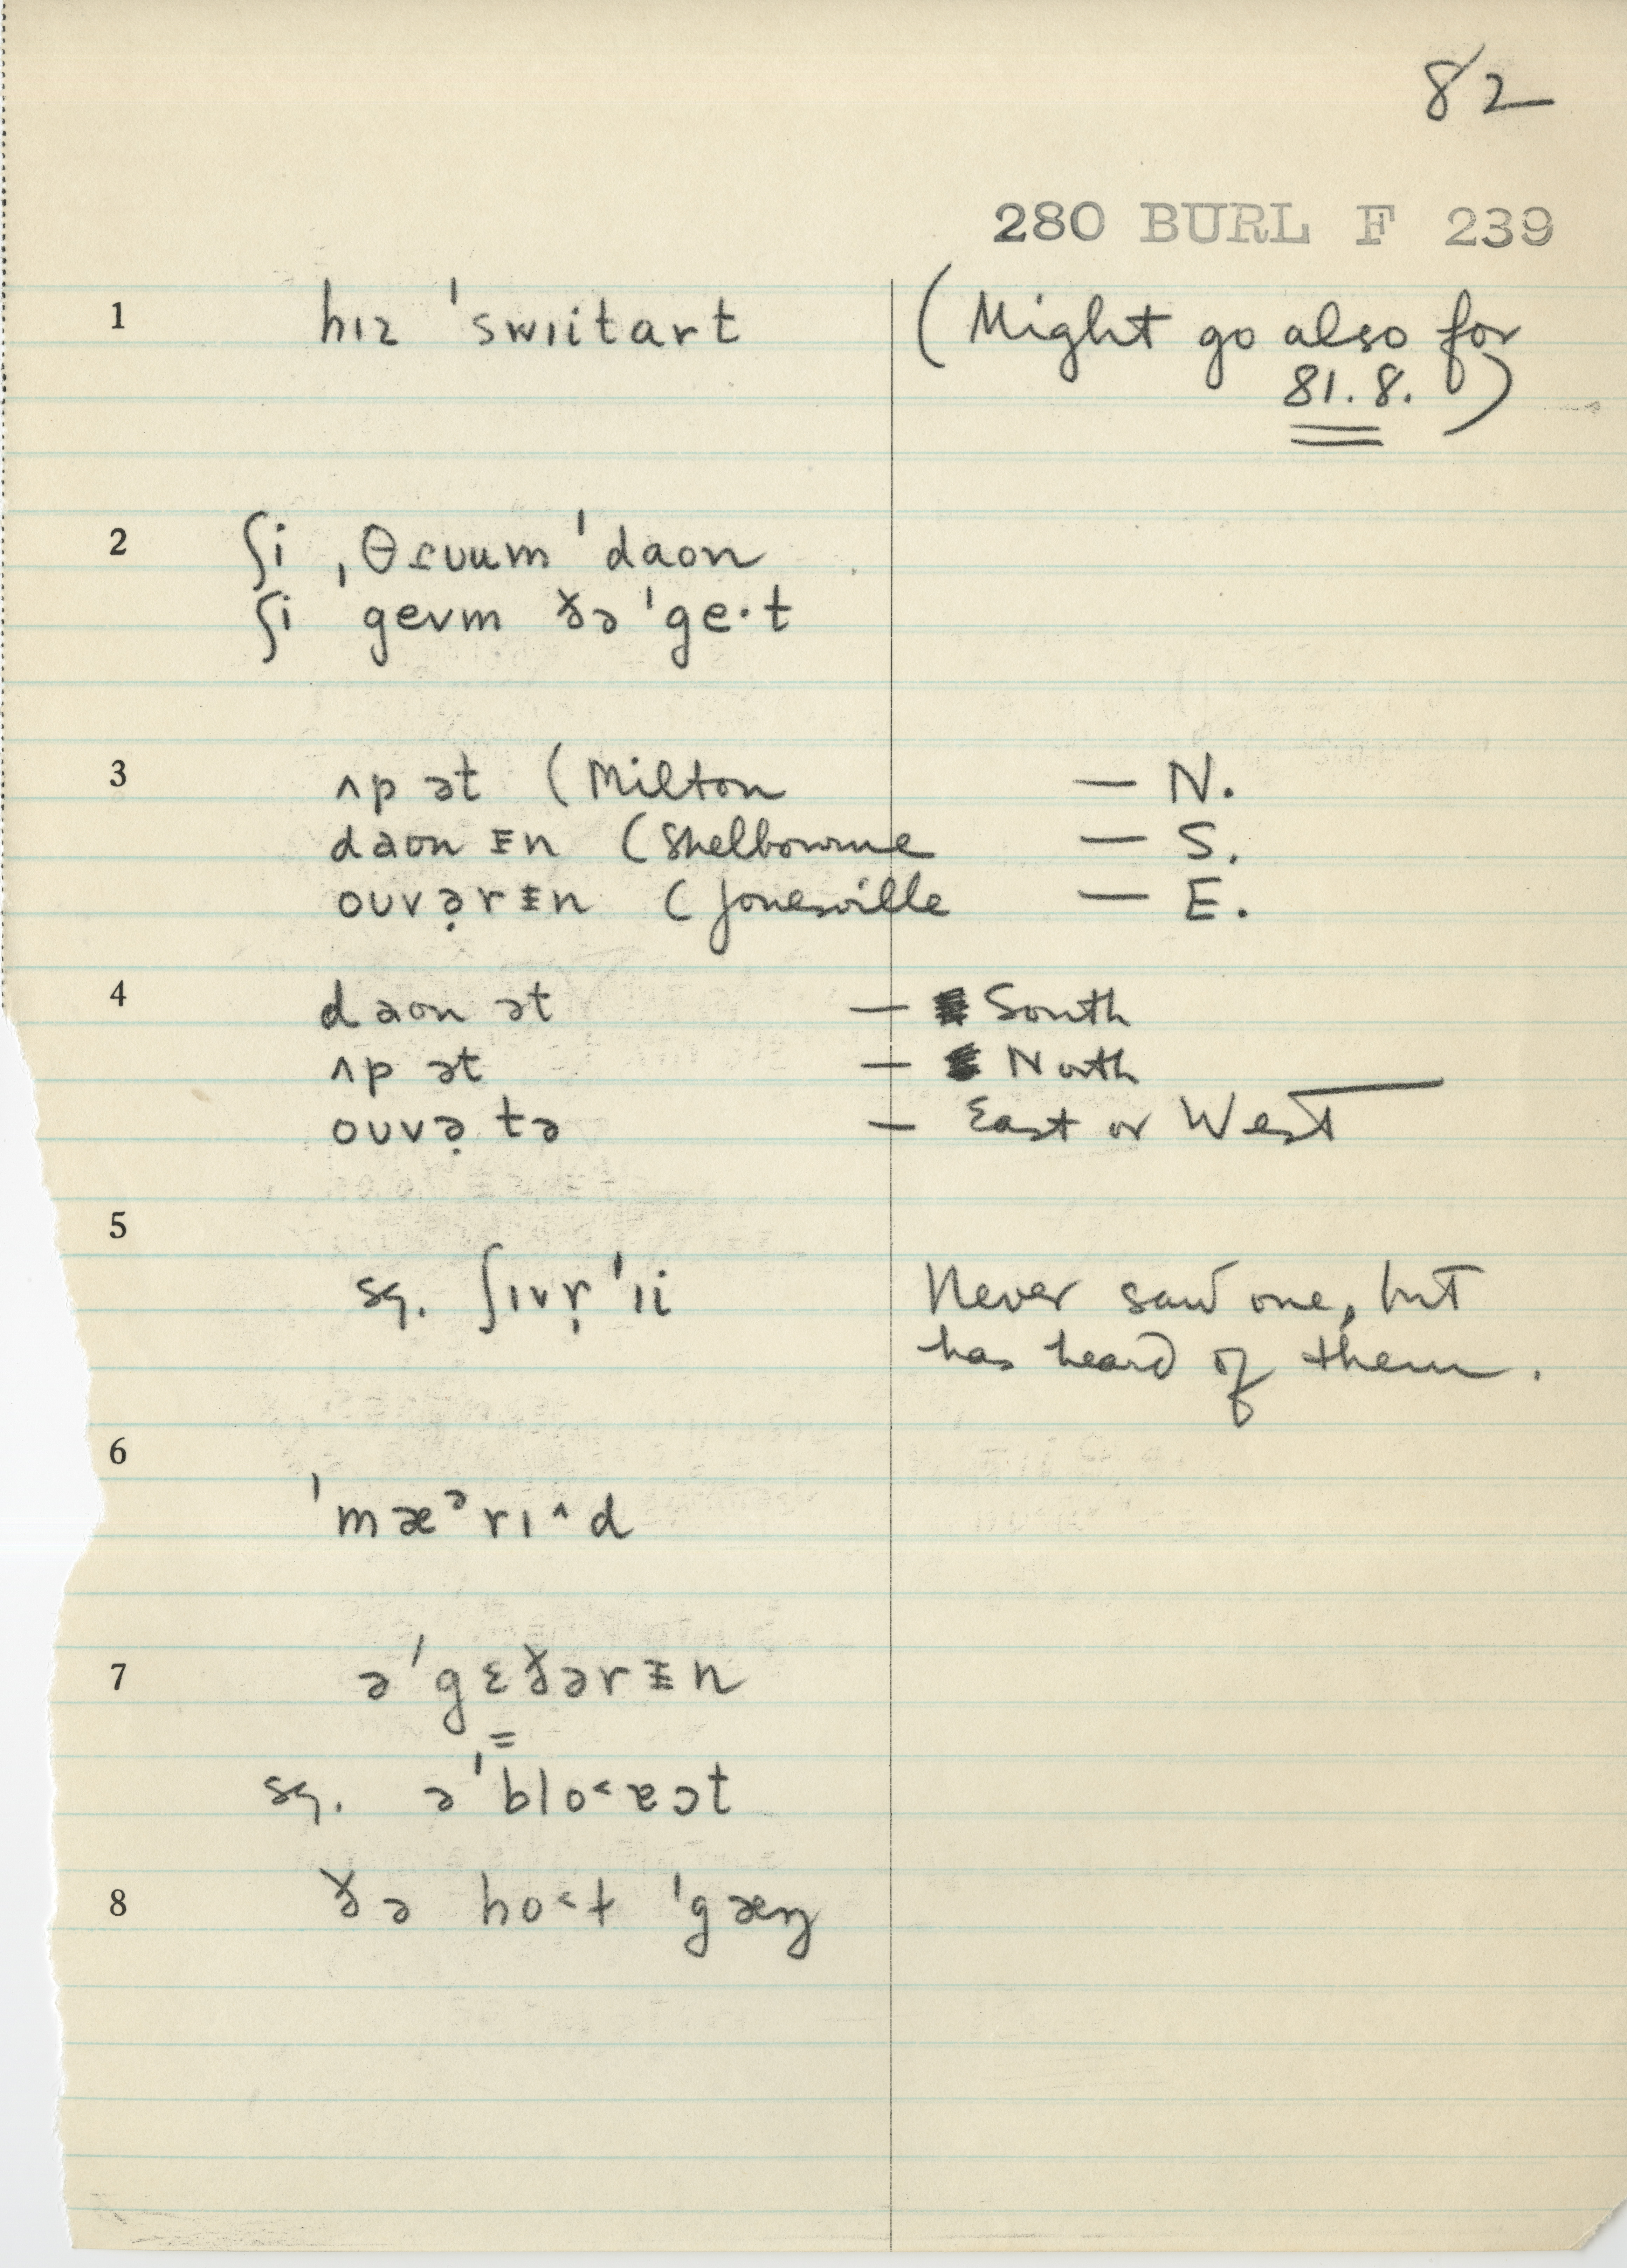 82
280 BURL F 239
1 hɪz ˈswɪitart (Might go also for
81.8.)
2 ʃi ˌθɾʊum ˈdaon
ʃi ˈgevm ðə ˈge·t
3 ʌp ət (Milton — N.
daon ᵻn (Shelbourne — S.
oʊvə̣rᵻn (Jonesville — E.
4 daon ət — South
ʌp ət — North
oʊvə̣ tə — East or West
5 sq. ʃɪvṛˈɪi Never saw one, but
has heard of them.
6 ˈmæᵊrɪ^d
7 əˈgɛðərᵻn
=
sq. əˈblo˂ɐɔt
8 ðə ho˂t ˈgæŋ